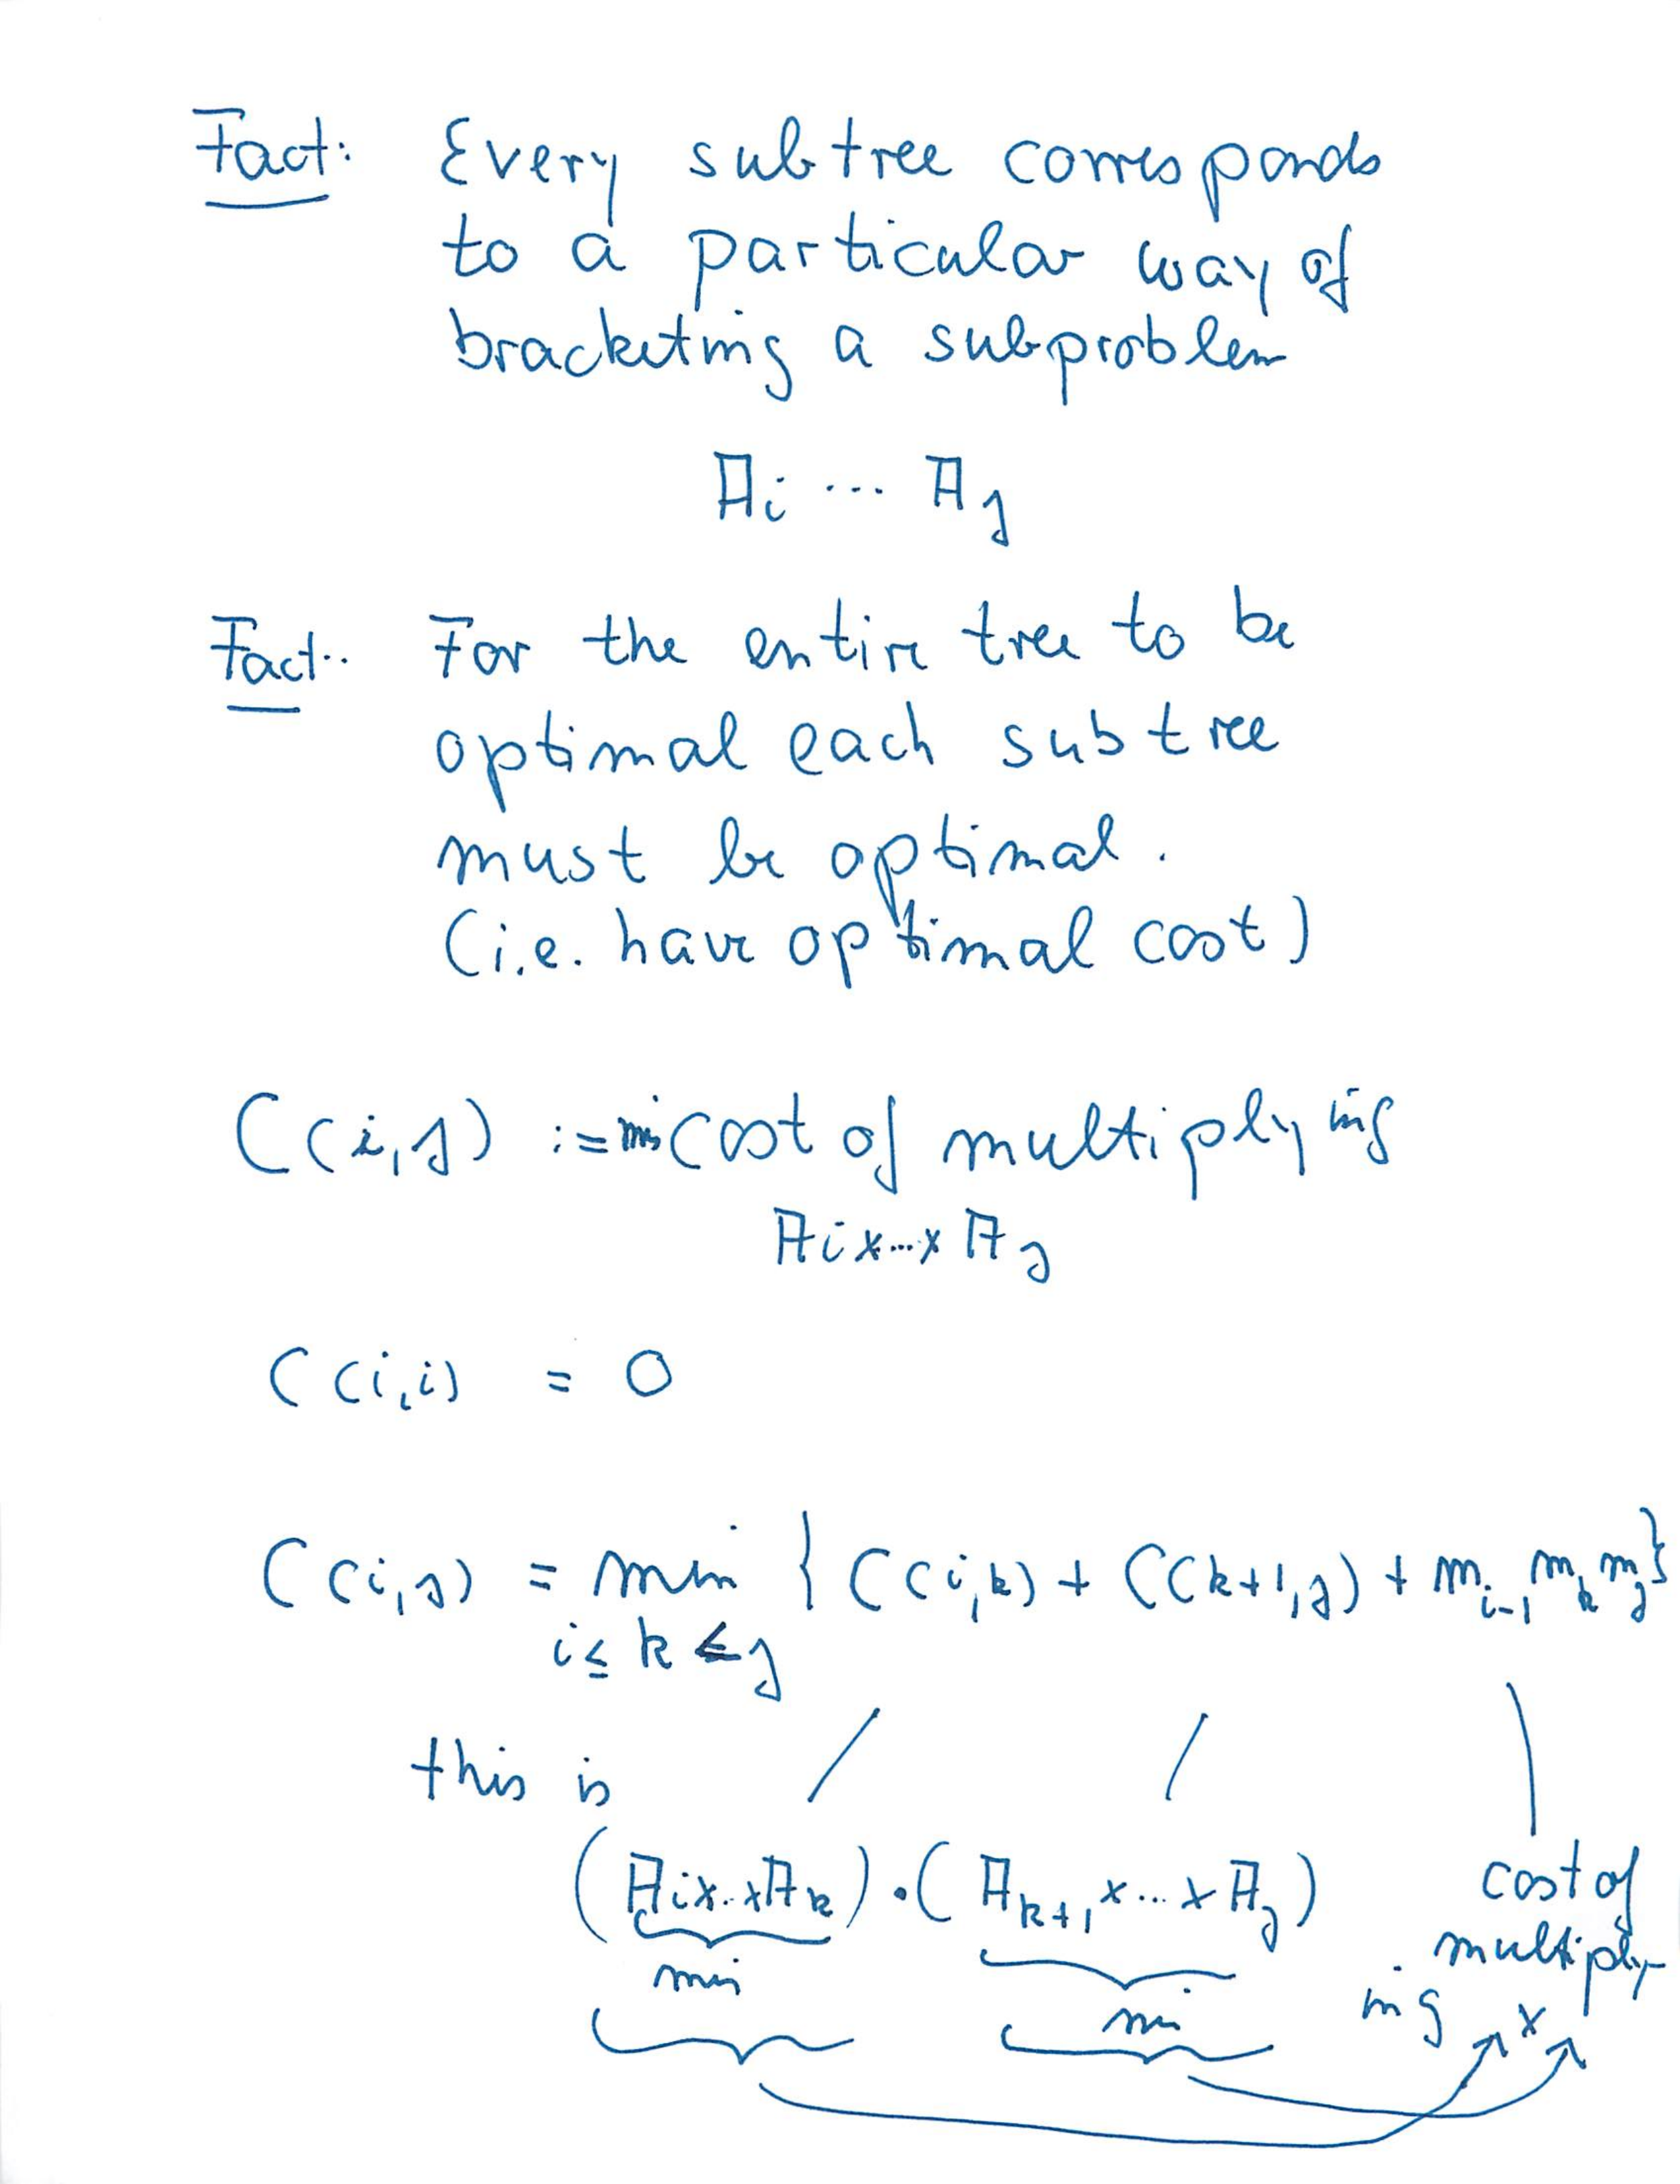 Fact: Every subtree corresponds
to a particular way of
bracketing a subproblem
Ai ... Aj
Fact: For the entire tree to be
optimal each subtree
must be optimal.
(i.e. have optimal cost)
C(i,j) := min cost of multiplying
Ai x...x Aj
C(i,i) = 0
C(i,j) = min { C(i,k) + C(k+1,j) + m_{i-1} m_k m_j }
i ≤ k < j
this is
(Ai x..x Ak) · (A_{k+1} x...x Aj)
cost of
multiply-
ing x
min
min